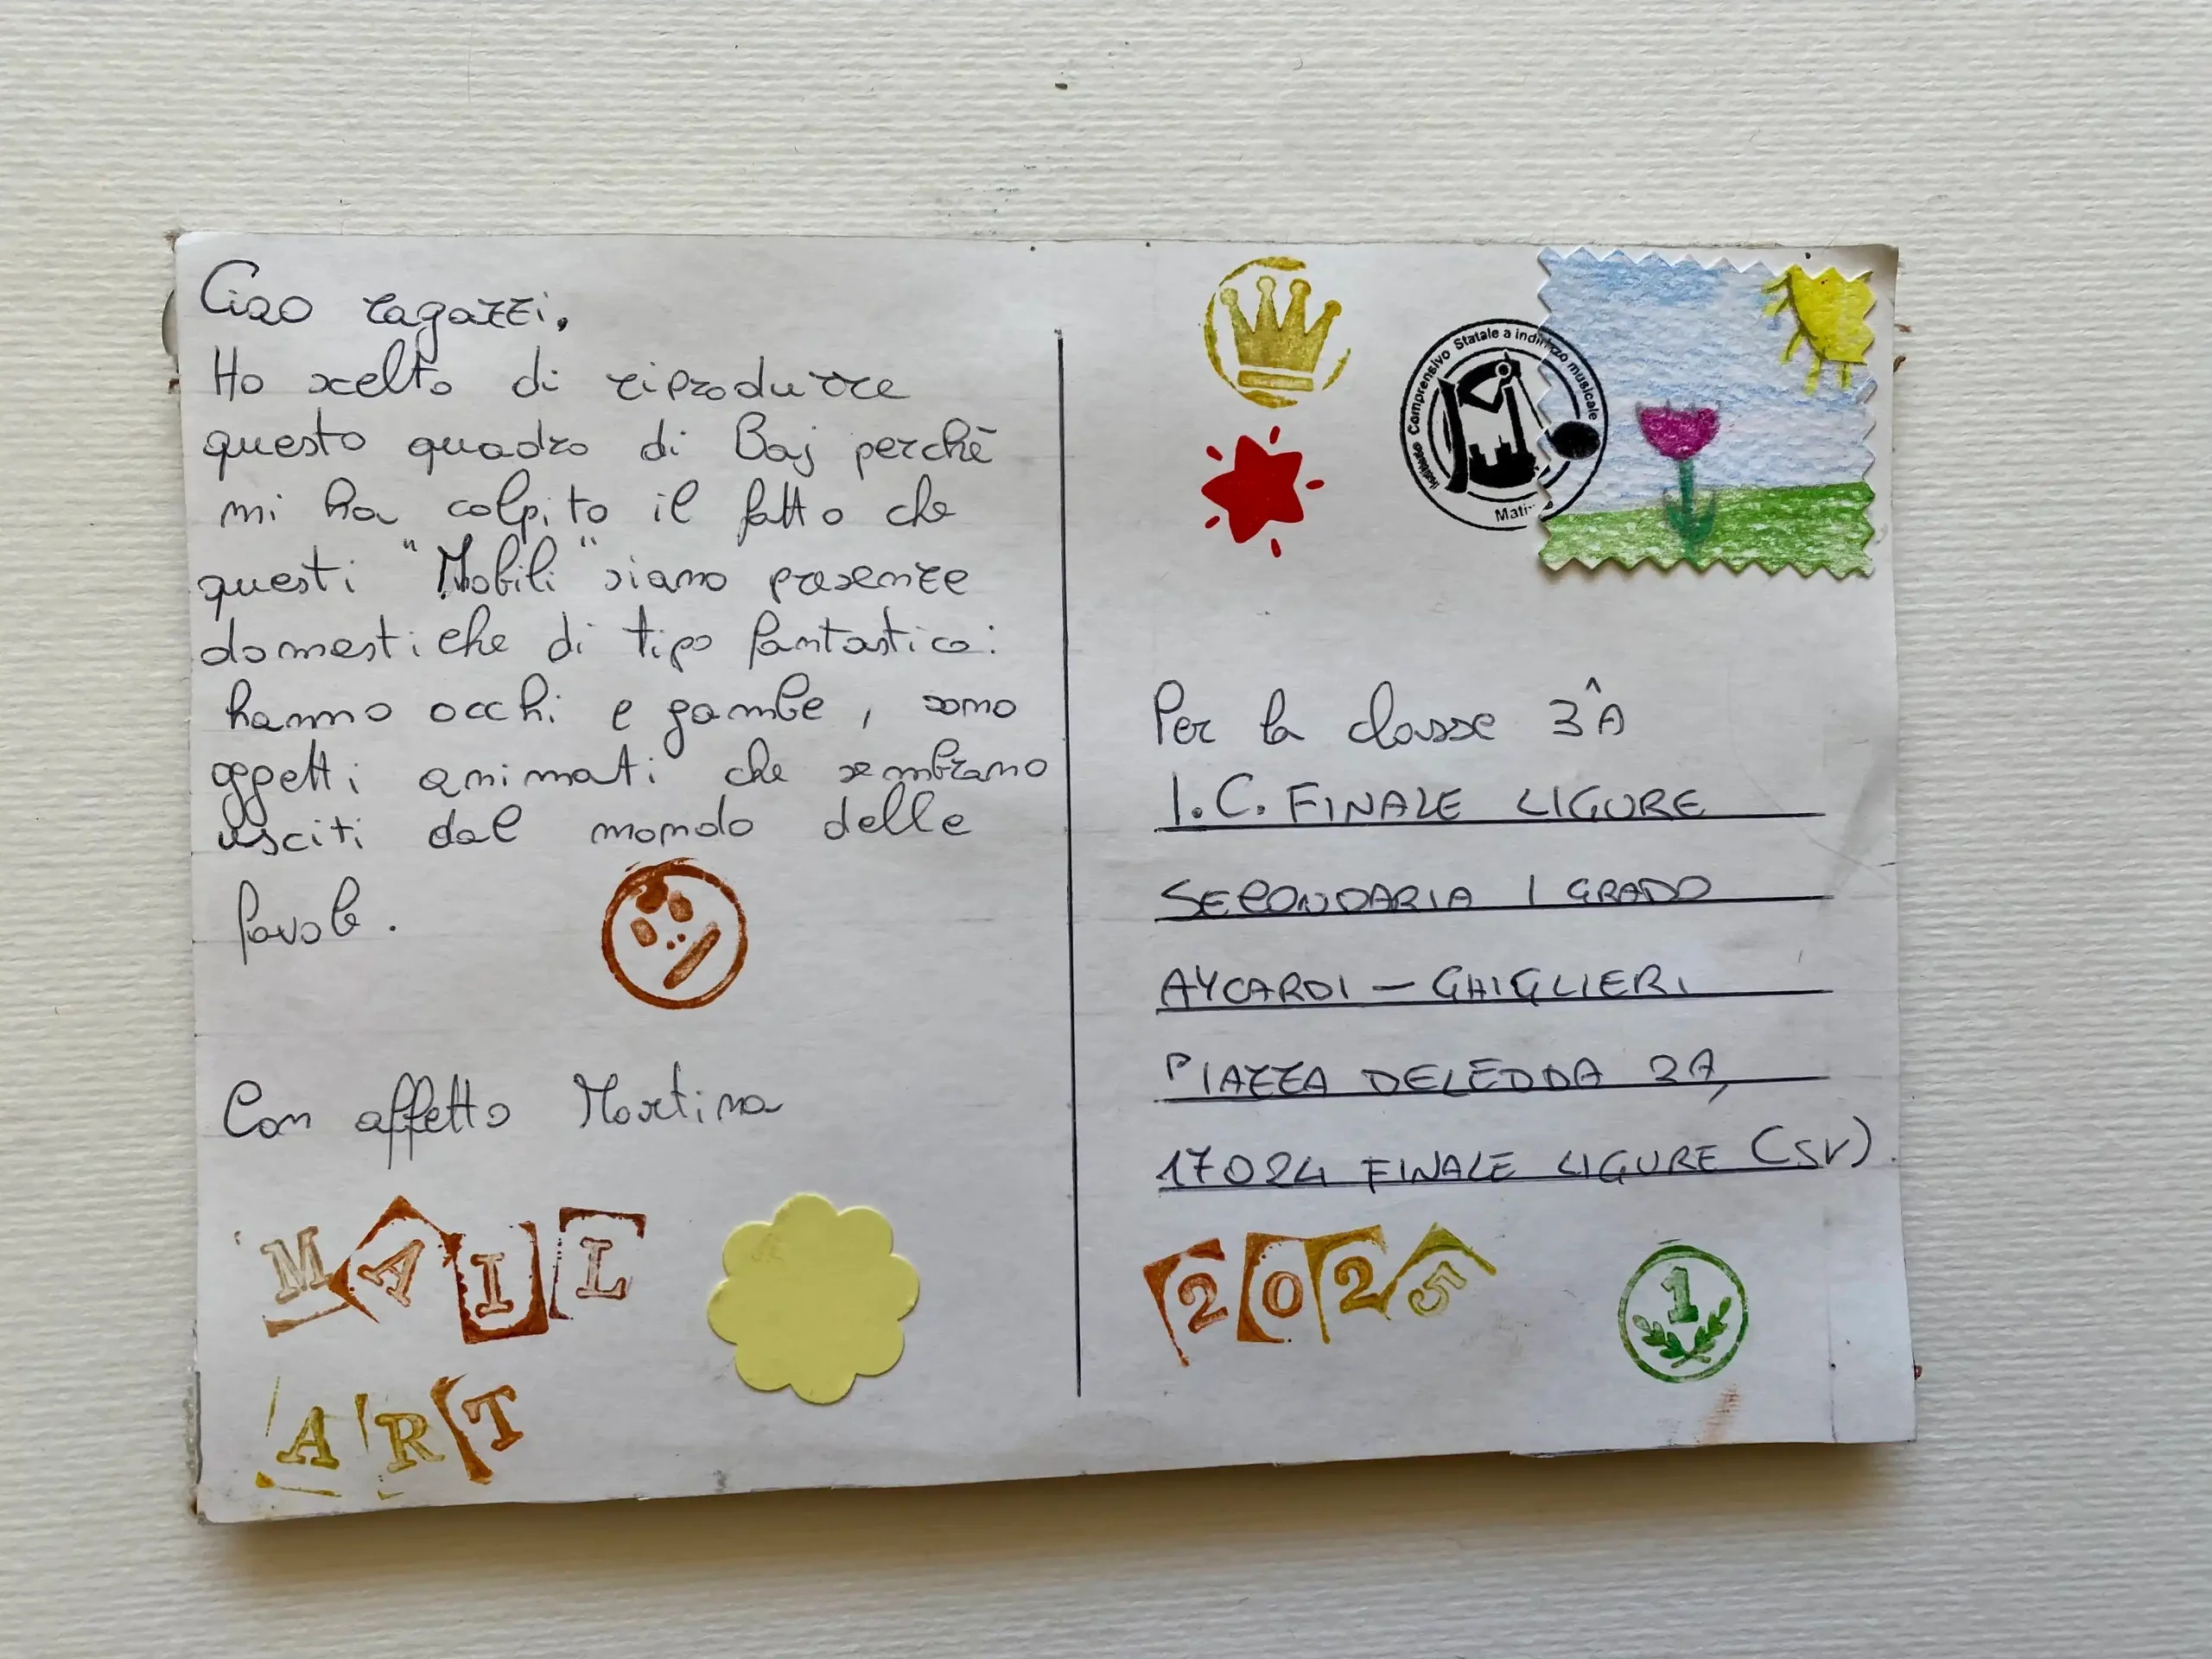 Ciao ragazzi,
Ho scelto di riprodurre
questo quadro di Baj perchè
mi ha colpito il fatto che
questi "Mobili" siano presenze
domestiche di tipo fantastico:
hanno occhi e gambe, sono
oggetti animati che sembrano
usciti dal mondo delle
favole.
Con affetto Martina
MAIL
ART
Istituto Comprensivo Statale a indirizzo musicale
Per la classe 3^A
I.C. FINALE LIGURE
SECONDARIA I GRADO
AYCARDI - GHIGLIERI
PIAZZA DELEDDA 2A,
17024 FINALE LIGURE (SV)
2025
1